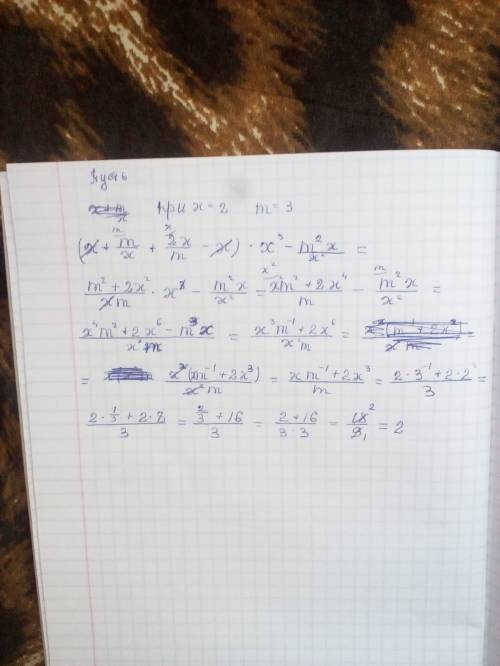 Пусть
при x = 2 m = 3
(x + m/x + 2x/m - x) · x³ - m²x/x² =
m² + 2x²/xm · x³ - m²x/x² = x²m² + 2x⁴/m - m²x/x² =
x⁴m² + 2x⁶ - m³x/x²m = x³m⁻¹ + 2x⁶/x²m =
= x²(xm⁻¹ + 2x³)/x²m = xm⁻¹ + 2x³/m = 2·3⁻¹ + 2·2³/3 =
2·1/3 + 2·8/3 = 2/3 + 16/3 = 2 + 16/3·3 = 18/9 = 2